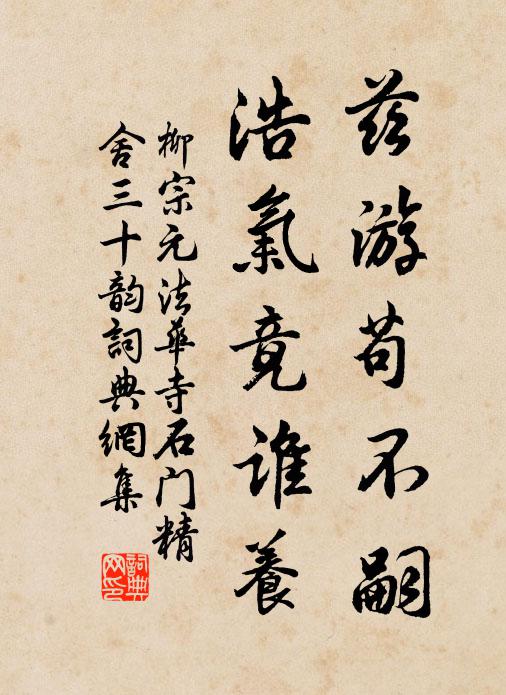 兹游苟不嗣
浩氣竟誰養
柳宗元法華寺石门精
舍三十韵詞典網集
詞典
网印